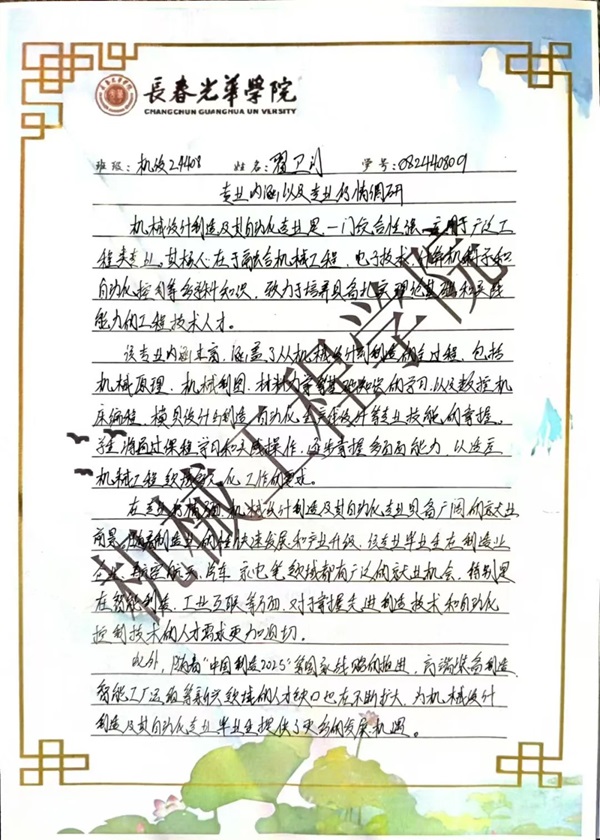 長春光華學院
CHANGCHUN GUANGHUA UNIVERSITY
班级: 机设24408 姓名: 卫 学号: 082440809
专业内涵以及专业行情调研
机械设计制造及其自动化专业是一门综合性强、应用广泛工
程类专业。其核心在于融合机械工程、电子技术、计算机科学和
自动化控制等多学科知识，致力于培养具备扎实理论基础和实践
能力的工程技术人才。
该专业内涵丰富，涵盖了从机械设计到制造的全过程，包括
机械原理、机械制图、材料力学等基础知识的学习，以及数控机
床编程、模具设计与制造、自动化生产线设计等专业技能的掌握。
学生将通过课程学习和实践操作，逐步掌握多方面能力，以适应
机械工程领域 化工作的要求。
在专业行情方面，机械设计制造及其自动化专业具备广阔的就业
前景。随着制造业的快速发展和产业升级，该专业毕业生在制造业
企业、航空航天、汽车、家电等领域都有广泛的就业机会，特别是
在智能制造、工业互联等方面，对于掌握先进制造技术和自动化
控制技术的人才需求更加迫切。
此外，随着“中国制造2025”等国家战略的推进，高端装备制造、
智能工厂运维等新兴领域的人才缺口也在不断扩大，为机械设计
制造及其自动化专业毕业生提供了更多的发展机遇。
机械工程学院